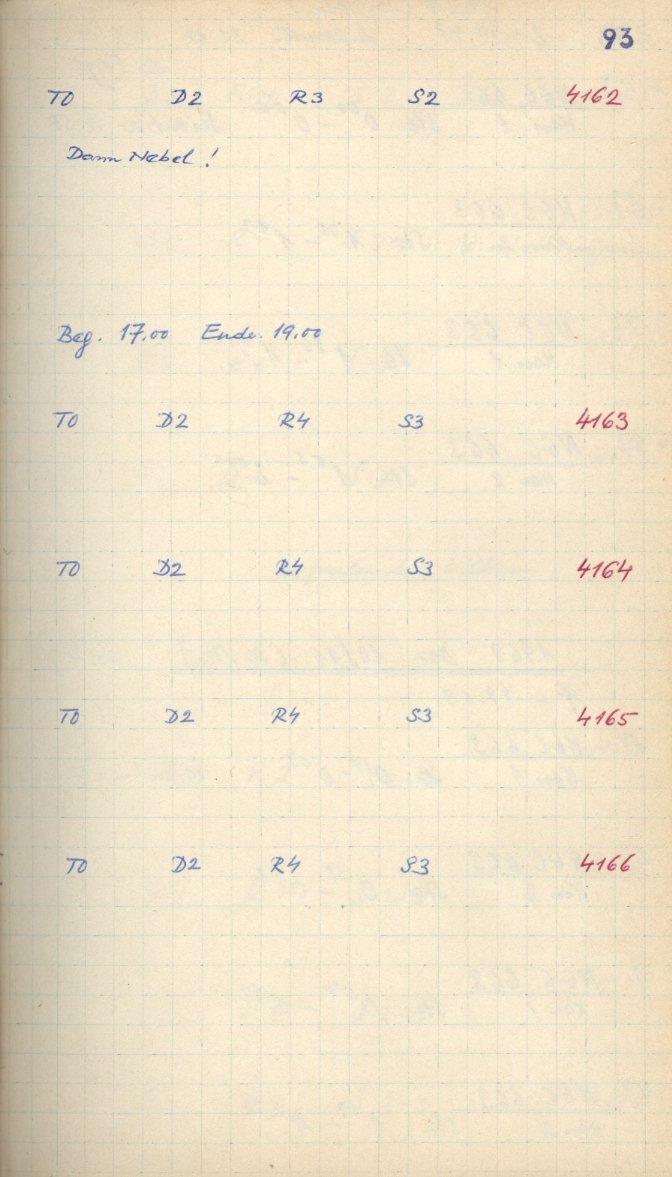 93
TO D2 R3 S2 4162
Dann Nebel !
Beg. 17.00 Ende. 19.00
TO D2 R4 S3 4163
TO D2 R4 S3 4164
TO D2 R4 S3 4165
TO D2 R4 S3 4166